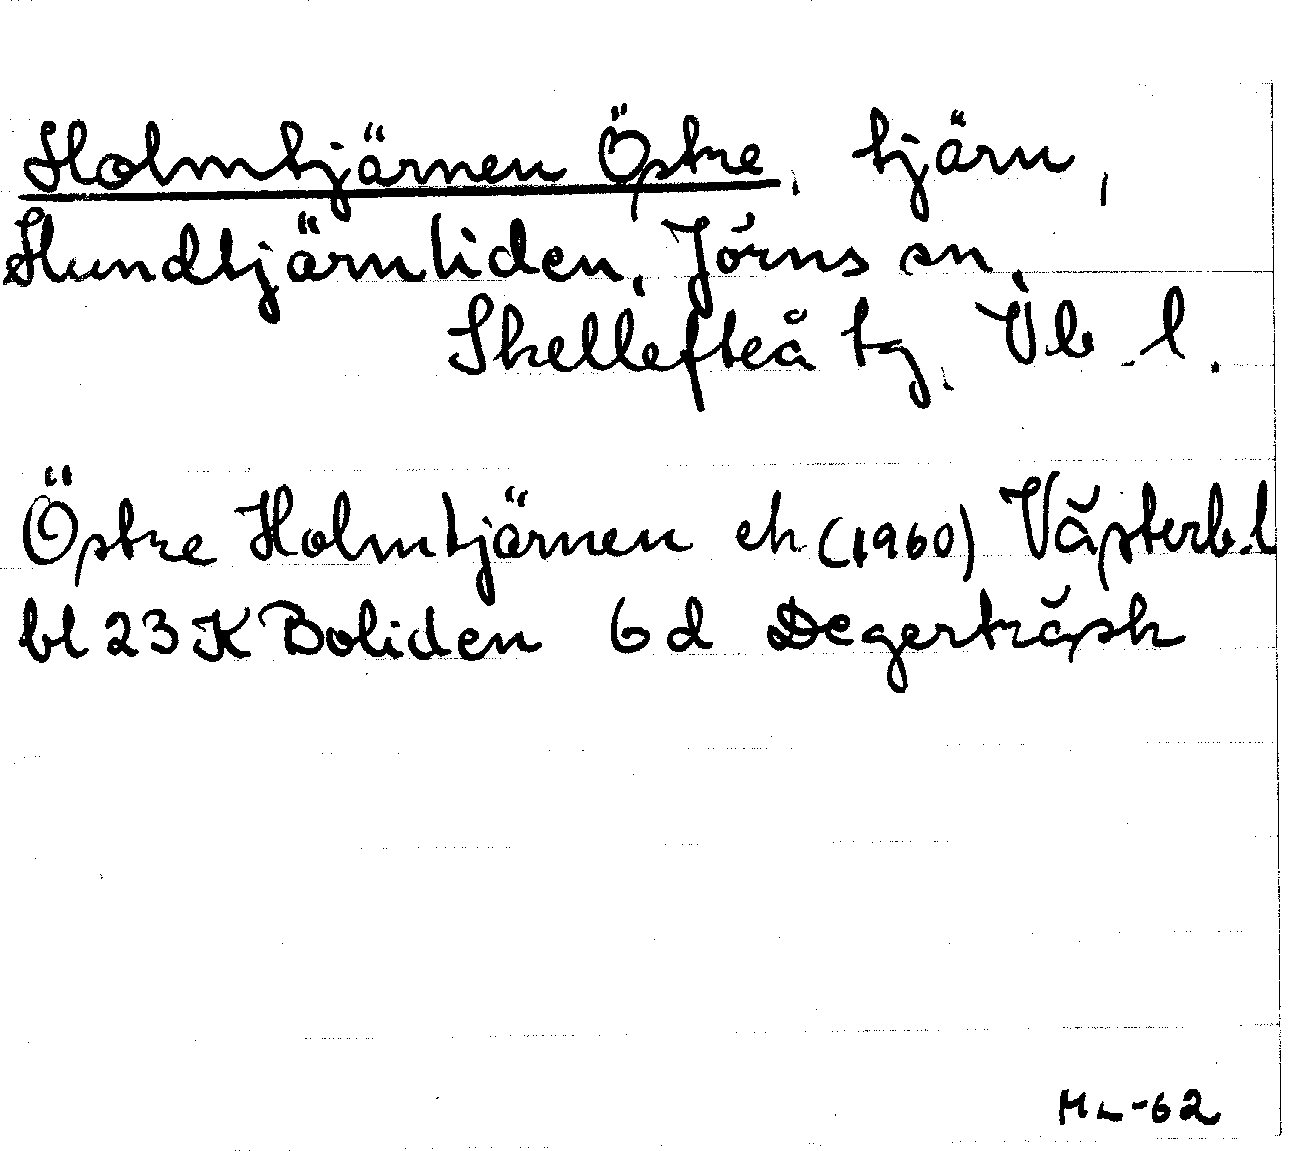 Holmtjärnen Östre, tjärn,
Hundtjärnliden, Jörns sn,
Skellefteå tg, Vb. l.
Östre Holmtjärnen ek (1960) Västerb.l
bl 23 K Boliden 6 d Degerträsk
HL-62